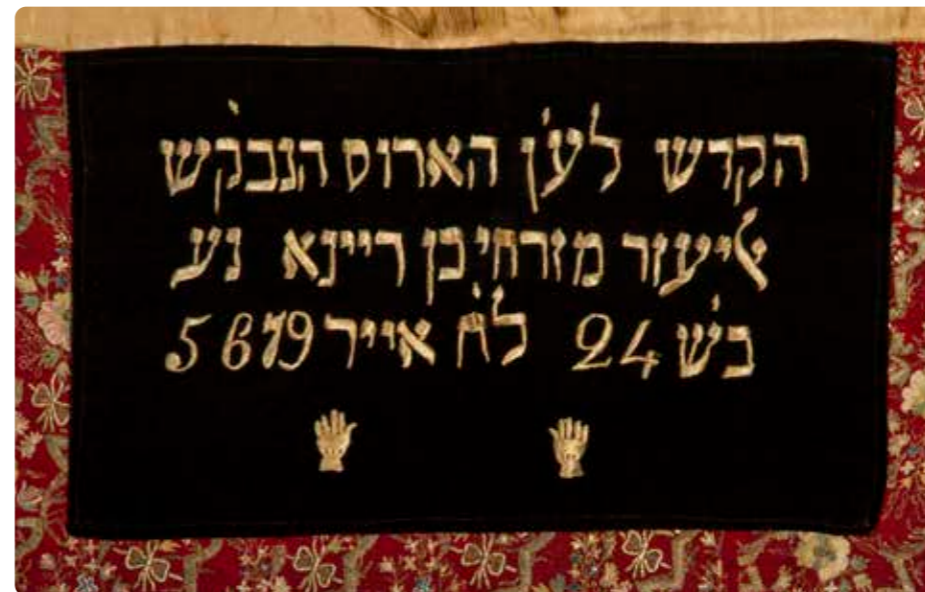 הקדש לע׳ן הארוס הנבק׳ש
אליעזר מזרחי בן ריינא נע
בש׳ 24 לח׳ אייר 5679